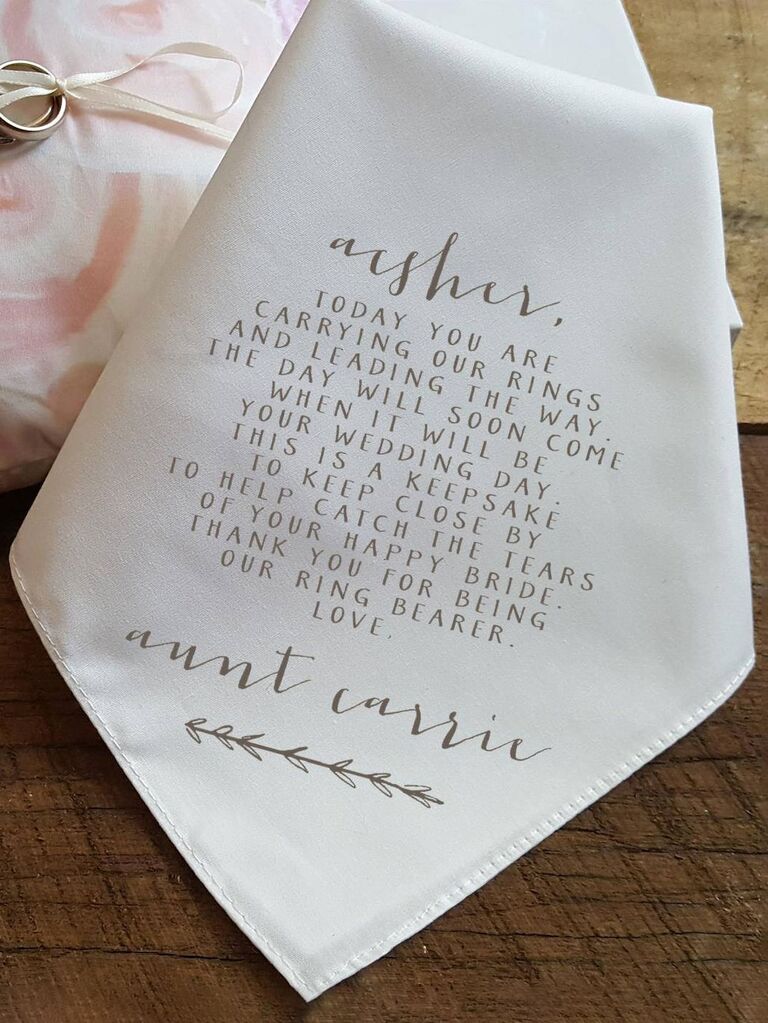 acsher,
TODAY YOU ARE
CARRYING OUR RINGS
AND LEADING THE WAY.
THE DAY WILL SOON COME
WHEN IT WILL BE
YOUR WEDDING DAY.
THIS IS A KEEPSAKE
TO KEEP CLOSE BY
TO HELP CATCH THE TEARS
OF YOUR HAPPY BRIDE.
THANK YOU FOR BEING
OUR RING BEARER.
LOVE,
aunt carrie